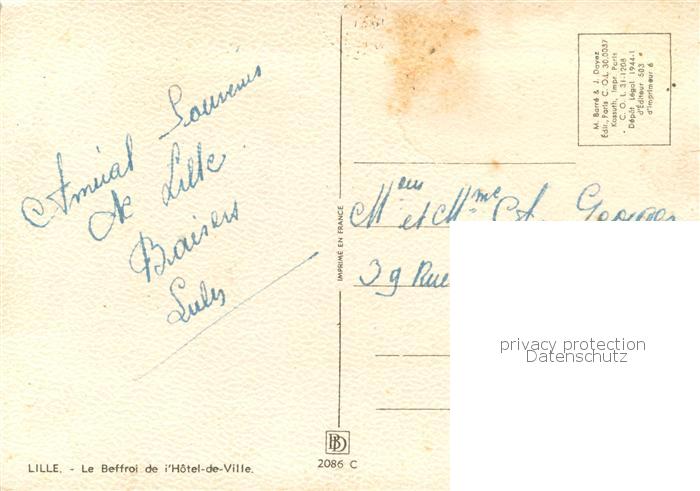 Amical Souvenir
de Lille
Baisers
Lules
M. Barré & J. Dayez
Edit., Paris C. O. L. 30.0037
Kossuth, Impr. Paris
C. O. L. 31-1208
Dépôt Légal 1944-1
d'Éditeur 503
d'Imprimeur 6
IMPRIMÉ EN FRANCE
Meur et Mme St. Georges
39 Rue
privacy protection
Datenschutz
BD
2086 C
LILLE. - Le Beffroi de l'Hôtel-de-Ville.